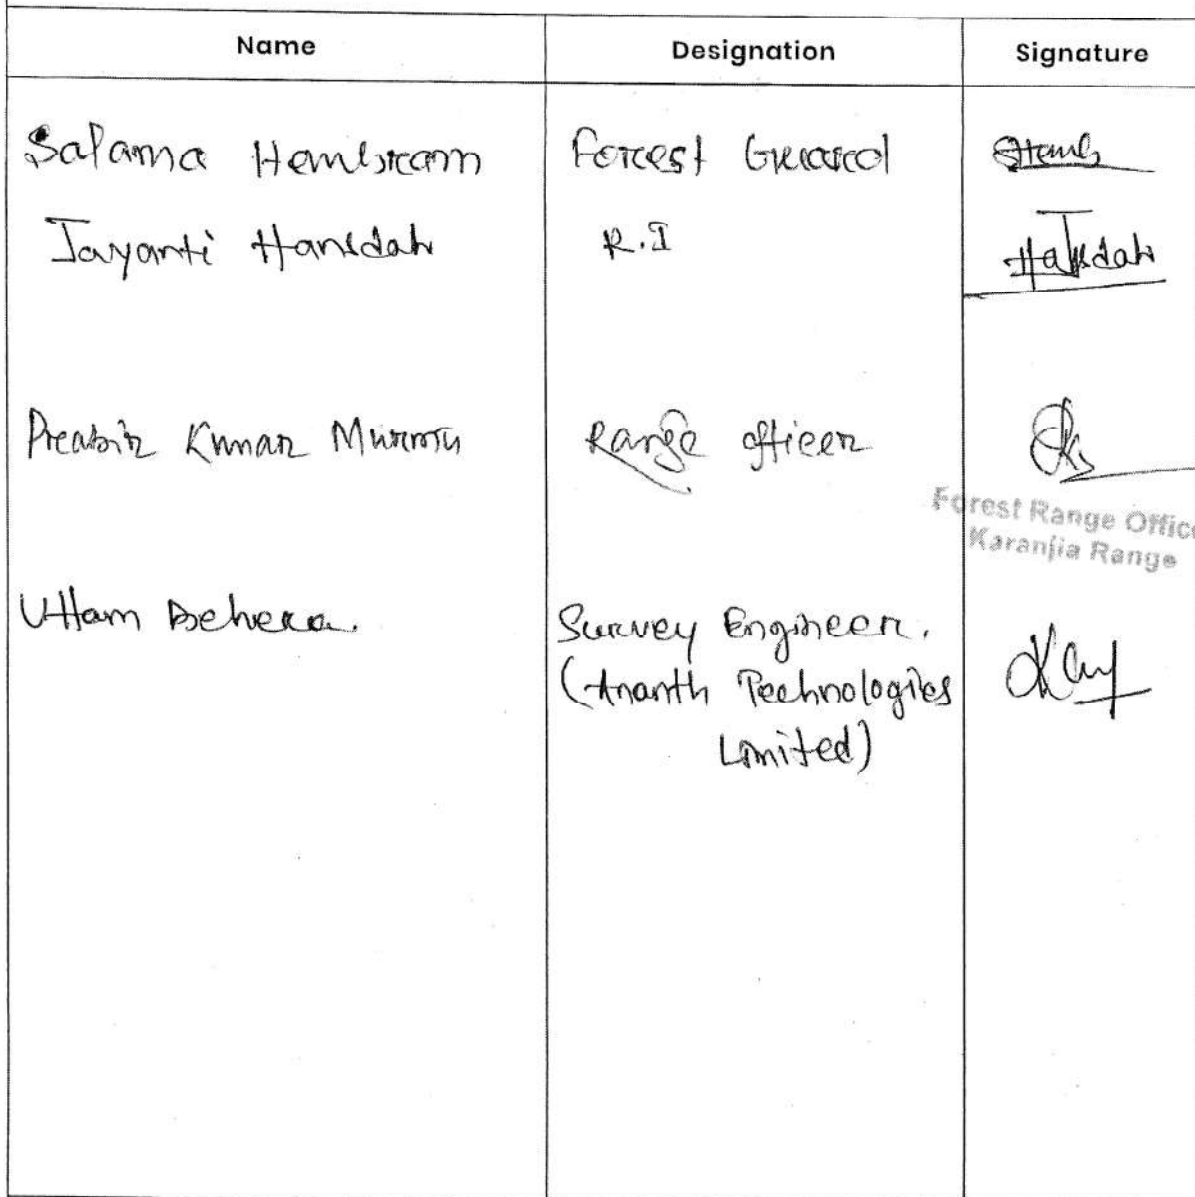 Name Designation Signature
Salama Hembram Forest Guard
Jayanti Hansdah R.I Hansdah
Prabir Kumar Murmu Range officer
Forest Range Offic
Karanjia Range
Uttam Behera. Survey Engineer.
(Ananth Technologies
Limited)